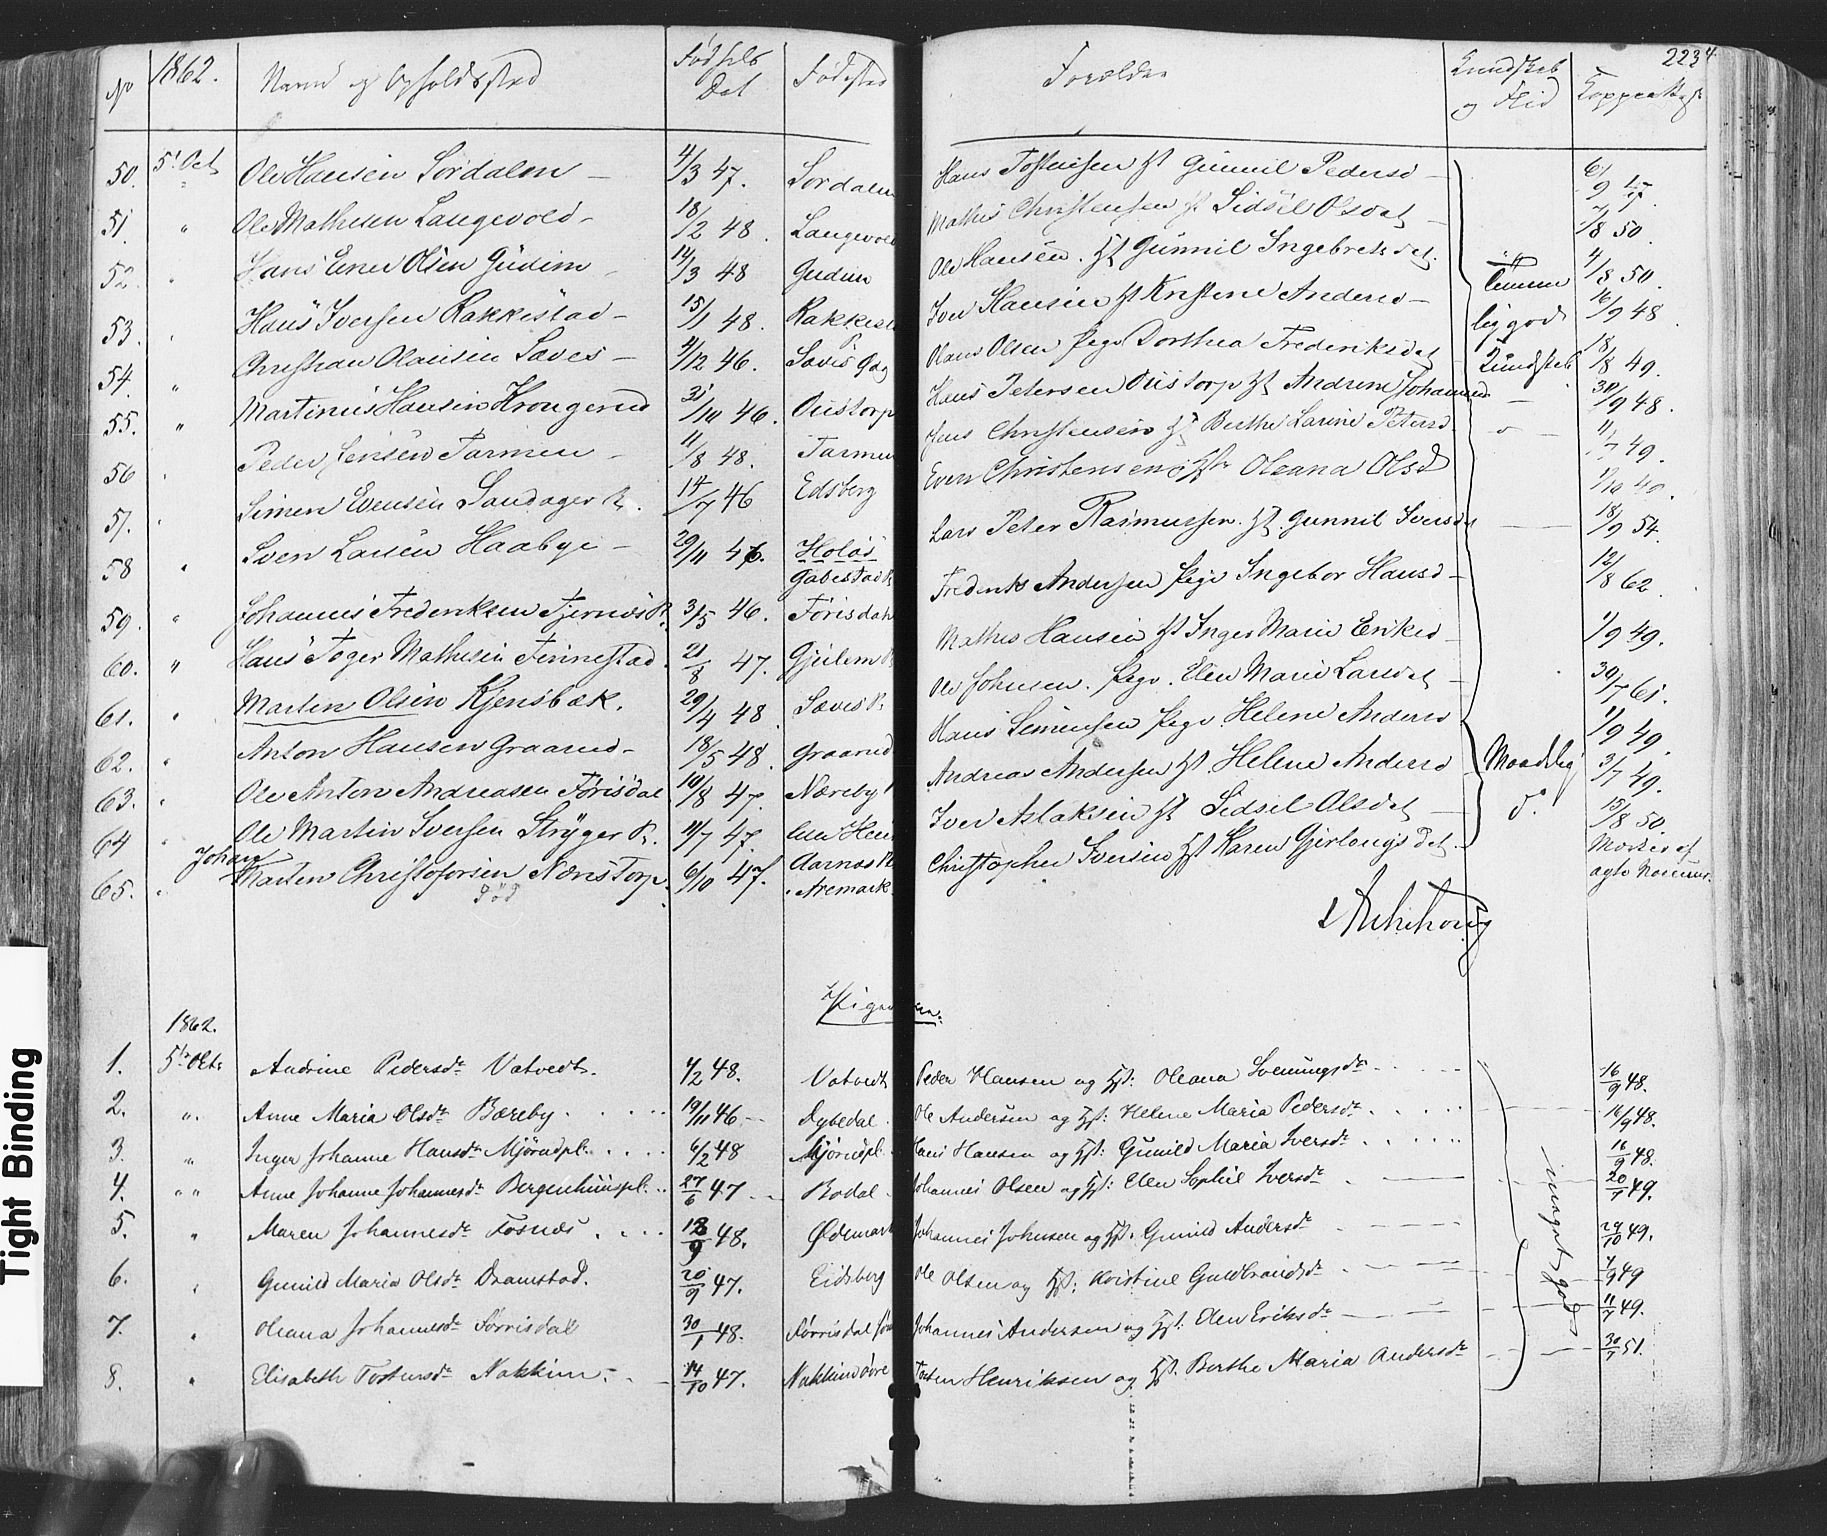 No 1862. Navn og Opholdssted Fødsels Dat Fødested Forældre Kundskab og Flid Koppeattest 2234
50. 5t Oct Ole Hansen Sørdalen – 4/3 47. Sørdalen Hans Gunnil Pedersd – 9 47.
51. " Ole Mathisen Langevold – 18/2 48. Langevold Mathis Christensen Hst Sidsil Olsdat – /8 50.
52. " Hans Olsen Gudim – 14/3 48 Gudim Ole Hansen. Hst Gunnil Ingebretsdat. 4/8 50.
53. " Hans Iversen Rakkestad – 15/1 48. Rakkest Iver Hansen Hst Kristine Andersd – 16/9 48
54. " Christian Olausen Saves – 4/12 46. Olaus Olsen Pige Dorthea Frederiksdat Kundskab 18/8 49.
55. " Martinius Hansen Krongerud /10 46. Oustorp Hans Petersen Oustorp Hst Andrine Johannesd – 30/9 48.
56 " Peder Jensen Tarmen – 11/8 48. Tarmen Jens Christensen Hst Berthe Larine Petersd 11/7 49.
57. " Simen Evensen Sandager 14/7 46 Edsberg Even Christensen Hst Oleana Olsd /10 49.
58 " Sven Larsen Haabye – 29/11 46. Holøs Lars Peter Rasmussen. Hst. Gunnil Iversdat 18/9 54.
59. " Johannes Frederiksen Tjernæs P. 3/5 46. Førisdahl Frederik Andersen Pige Ingebor Hansd – 12/8 62
60. " Hans Mathisen Finnestad. 21/8 47. Gjeilem Mathis Hansen Hst Inger Marie Eriksd – 1/9 49.
61. " Martin Olsen Kjensbæk. 29/4 48. Sæves P. Ole Johnsen. Pige. Elen Marie Larsdat – 30/7 61.
62. " Anton Hansen Graarud – 18/5 48. Graarud Hans Simensen Pige Helene Andersd 1/9 49.
63. " Ole Anton Andreasen Førisdal 10/8 47. Næreby Andreas Andersen Hst Helene Andersd Maadelig 3/7 49.
64 " Ole Martin Iversen Stryger P. 11/7 47. Iver Aslaksen Hst Sidsil Olsdat – do. 15/8 50.
65. " Johan Martin Christofersen Næristorp. Død 6/10 47. Aarnæs Aremark Christopher Iversen Hst Karen Gjerlaugsdat. Mærker af
1862. Pigerne:
1. 5te Octr Andrine Pedersdr Vatvedt. 4/2 48. Vatvedt Peder Hansen og Hst: Oleana Svenningsdr 16/9 48.
2. " Anne Maria Olsdr Bæreby. 19/11 46 Dybedal. Ole Andersen og Hst: Helene Maria Pedersdr 16/9 48.
3. " Inger Johanne Hansdr Mjørudpl. 6/2 48 Mjørudpl. Hans Hansen og Hst: Gunild Maria Iversdr 16/9 48.
4. " " Anne Johanne Johannesdr Bergenhuuspl. 27/6 47 Bodal Johannes Olsen og Hst: Elen Sophie Iversdr meget god 20/7 49.
5. " Maren Johannesdr Fosnæs 18/9 48. Ødemark Johannes Johnsen og Hst: Gunild Andersdr 29/10 49.
6. " Gunild Maria Olsdr Dramstad. 20/9 47. Eidsberg Ole Olsen og Hst: Kristine Guldbrandsdr 7/9 49
7. " Oleana Johannesdr Førrisdal 30/1 48. Førrisdal Johannes Andersen og Hst: Elen Eriksdr 11/7 49.
8. " Elisabeth Tostensdr Nakkim 14/10 47. Nakkim øvre Tosten Henriksen og Hst. Berthe Maria Andersdr 30/7 51.
Tight Binding